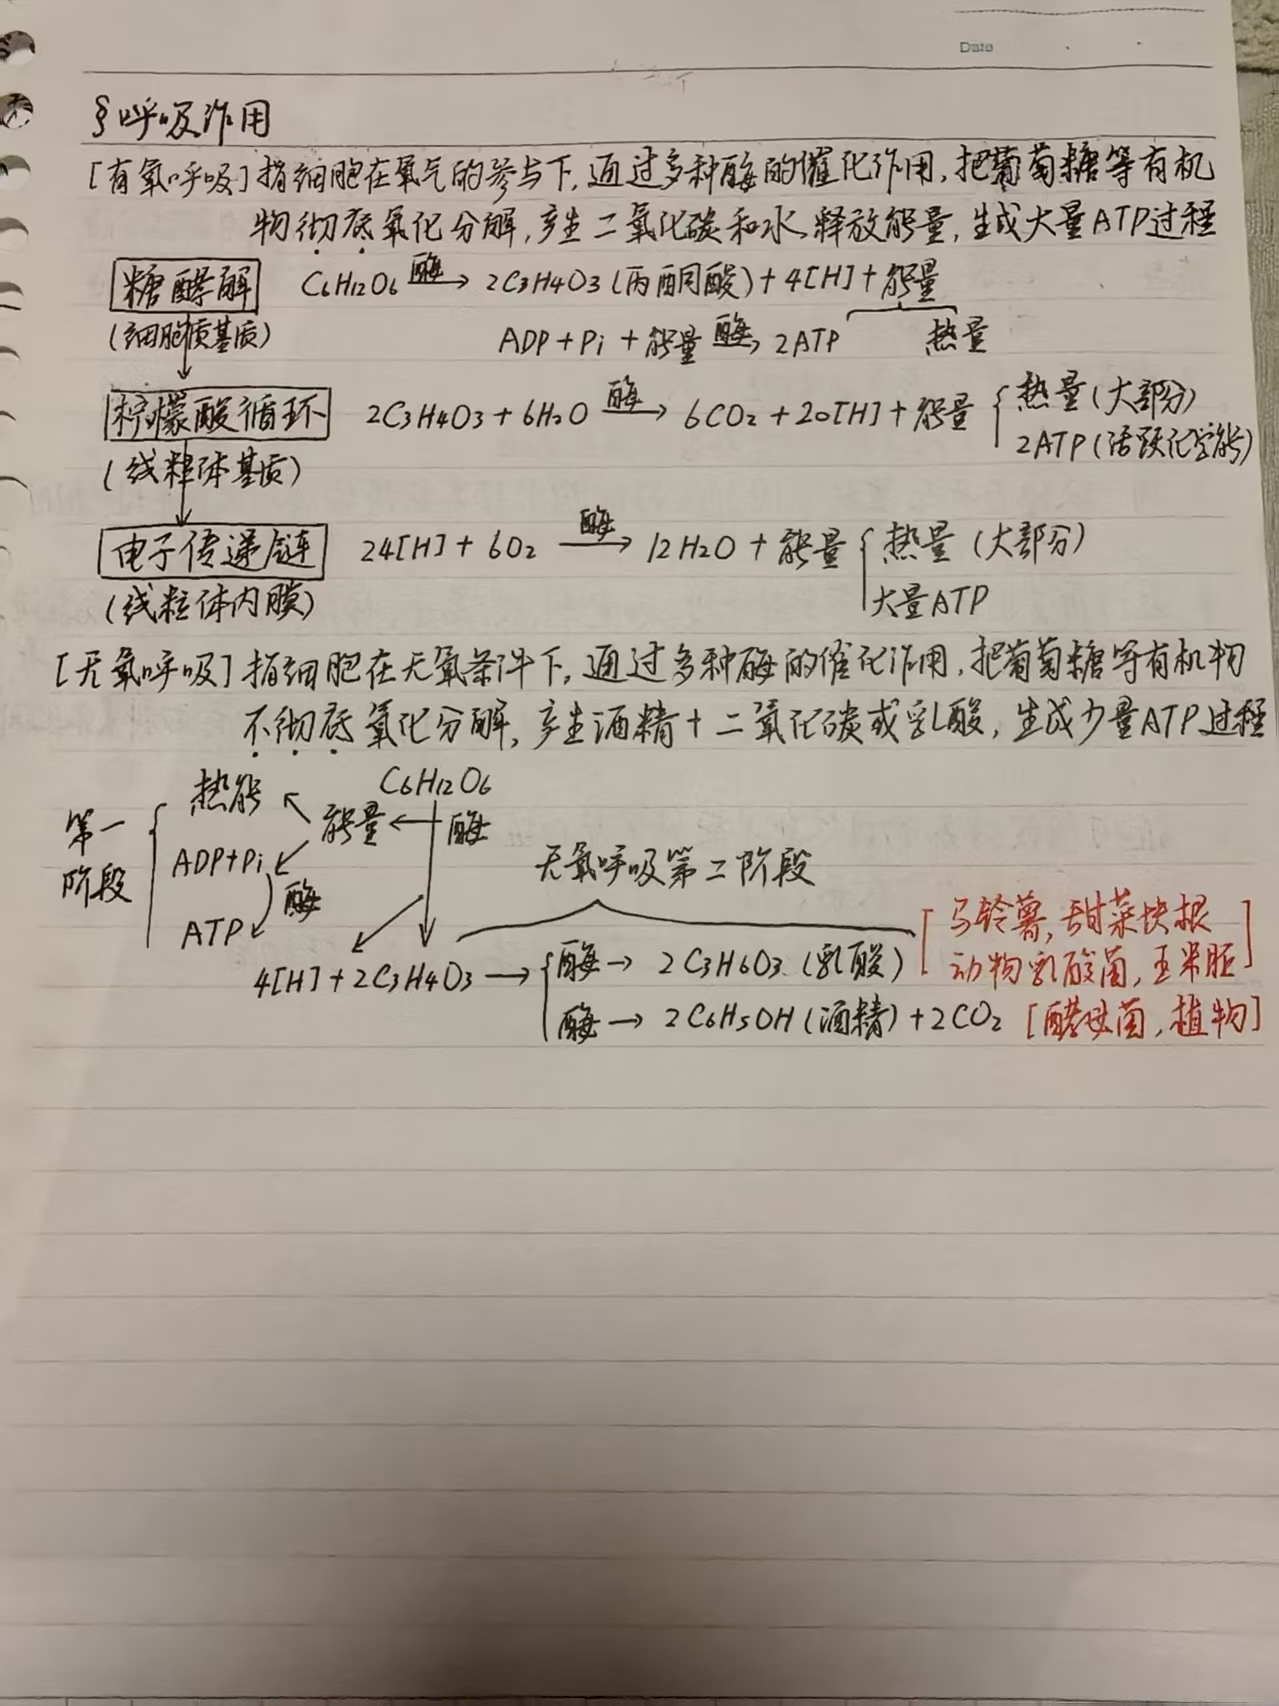 Date
§呼吸作用
[有氧呼吸]指细胞在氧气的参与下,通过多种酶的催化作用,把葡萄糖等有机
物彻底氧化分解,产生二氧化碳和水,释放能量,生成大量ATP过程
糖酵解 C6H12O6 酶→ 2C3H4O3(丙酮酸)+4[H]+能量
(细胞质基质) ADP+Pi+能量 酶→ 2ATP 热量
柠檬酸循环 2C3H4O3+6H2O 酶→ 6CO2+20[H]+能量 { 热量(大部分)
(线粒体基质) 2ATP(活跃化学能)
电子传递链 24[H]+6O2 酶→ 12H2O+能量 { 热量(大部分)
(线粒体内膜) 大量ATP
[无氧呼吸]指细胞在无氧条件下,通过多种酶的催化作用,把葡萄糖等有机物
不彻底氧化分解,产生酒精+二氧化碳或乳酸,生成少量ATP过程
热能 C6H12O6
第一 能量 ← 酶
阶段 ADP+Pi 无氧呼吸第二阶段
酶
ATP
4[H]+2C3H4O3 → { 酶→ 2C3H6O3(乳酸) [马铃薯,甜菜块根
动物乳酸菌,玉米胚]
酶→ 2C6H5OH(酒精)+2CO2 [酵母菌,植物]